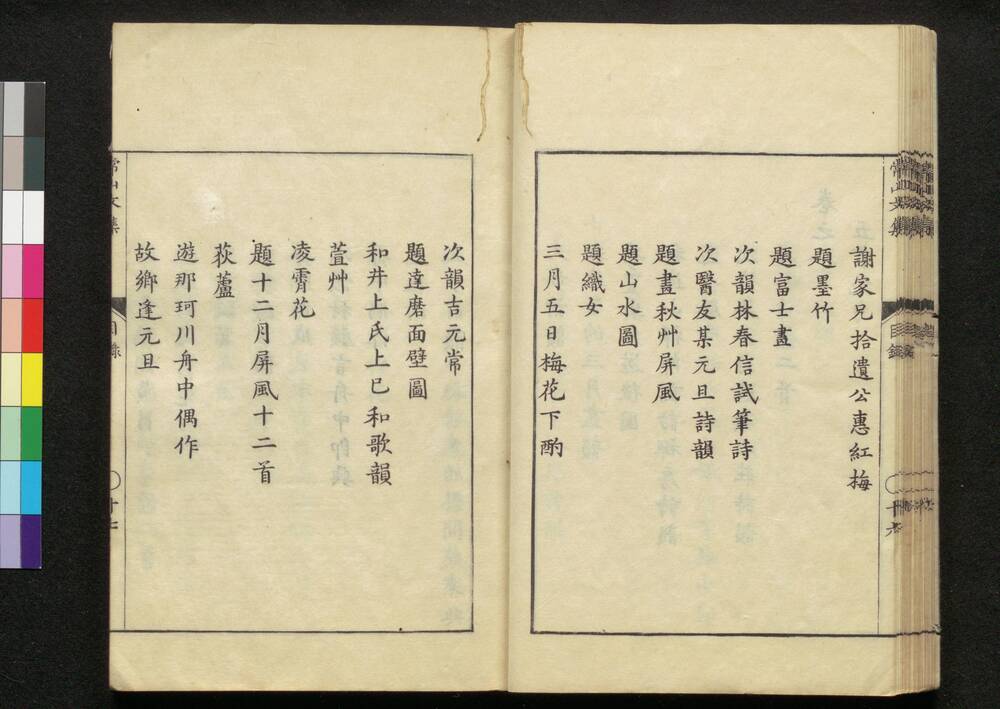 謝家兄拾遺公惠紅梅
題墨竹
題富士畫
次韻林春信試筆詩
次醫友某元旦詩韻
題畫秋艸屏風
題山水圖
題織女
三月五日梅花下酌
次韻吉元常
題達磨面壁圖
和井上氏上巳和歌韻
萱艸
凌霄花
題十二月屏風十二首
荻蘆
遊那珂川舟中偶作
故鄉逢元旦
常山文集
目錄
十七